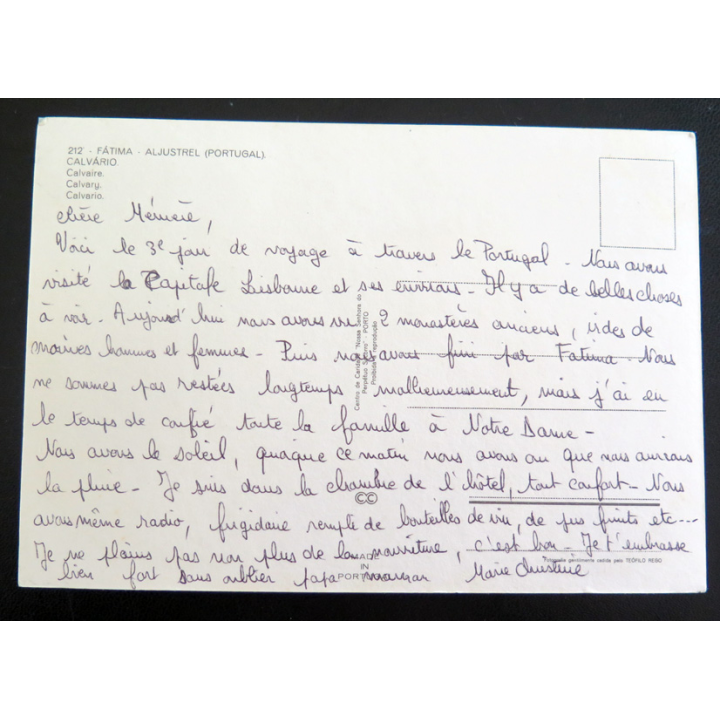 212 - FÁTIMA - ALJUSTREL (PORTUGAL).
CALVÁRIO
Calvaire.
Calvary.
Calvario.
Chère Mémère,
Voici le 3e jour de voyage à travers le Portugal - Nous avons
visité la Capitale Lisbonne et ses environs - Il y a de belles choses
à voir - Aujourd'hui nous avons vu 2 monastères anciens, vides de
moines hommes et femmes - Puis nous avons fini par Fatima - Nous
ne sommes pas restées longtemps malheureusement, mais j'ai eu
le temps de confié toute la famille à Notre Dame -
Nous avons le soleil, quoique ce matin nous avons cru que nous aurions
la pluie - Je suis dans la chambre de l'hôtel, tout confort - Nous
avons même radio, frigidaire remplie de bouteilles de vin, de jus fruits etc ----
Je ne plains pas non plus de la nourriture, c'est bon - Je t'embrasse
bien fort sans oublier papa maman Marie Christine
Centro de Caridade "Nossa Senhora do
Perpétuo Socorro" - PORTO
Proibida a reprodução
CC
MADE
IN
PORTUGAL
gentilmente cedida pelo TEÓFILO REGO